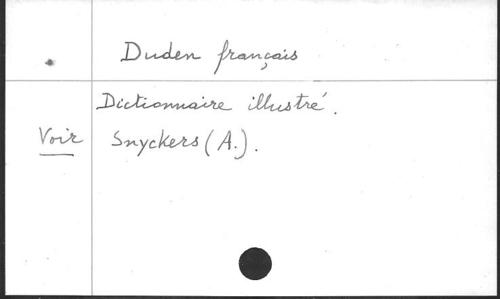 Duden français
Dictionnaire illustré.
Voir Snyckers (A.).